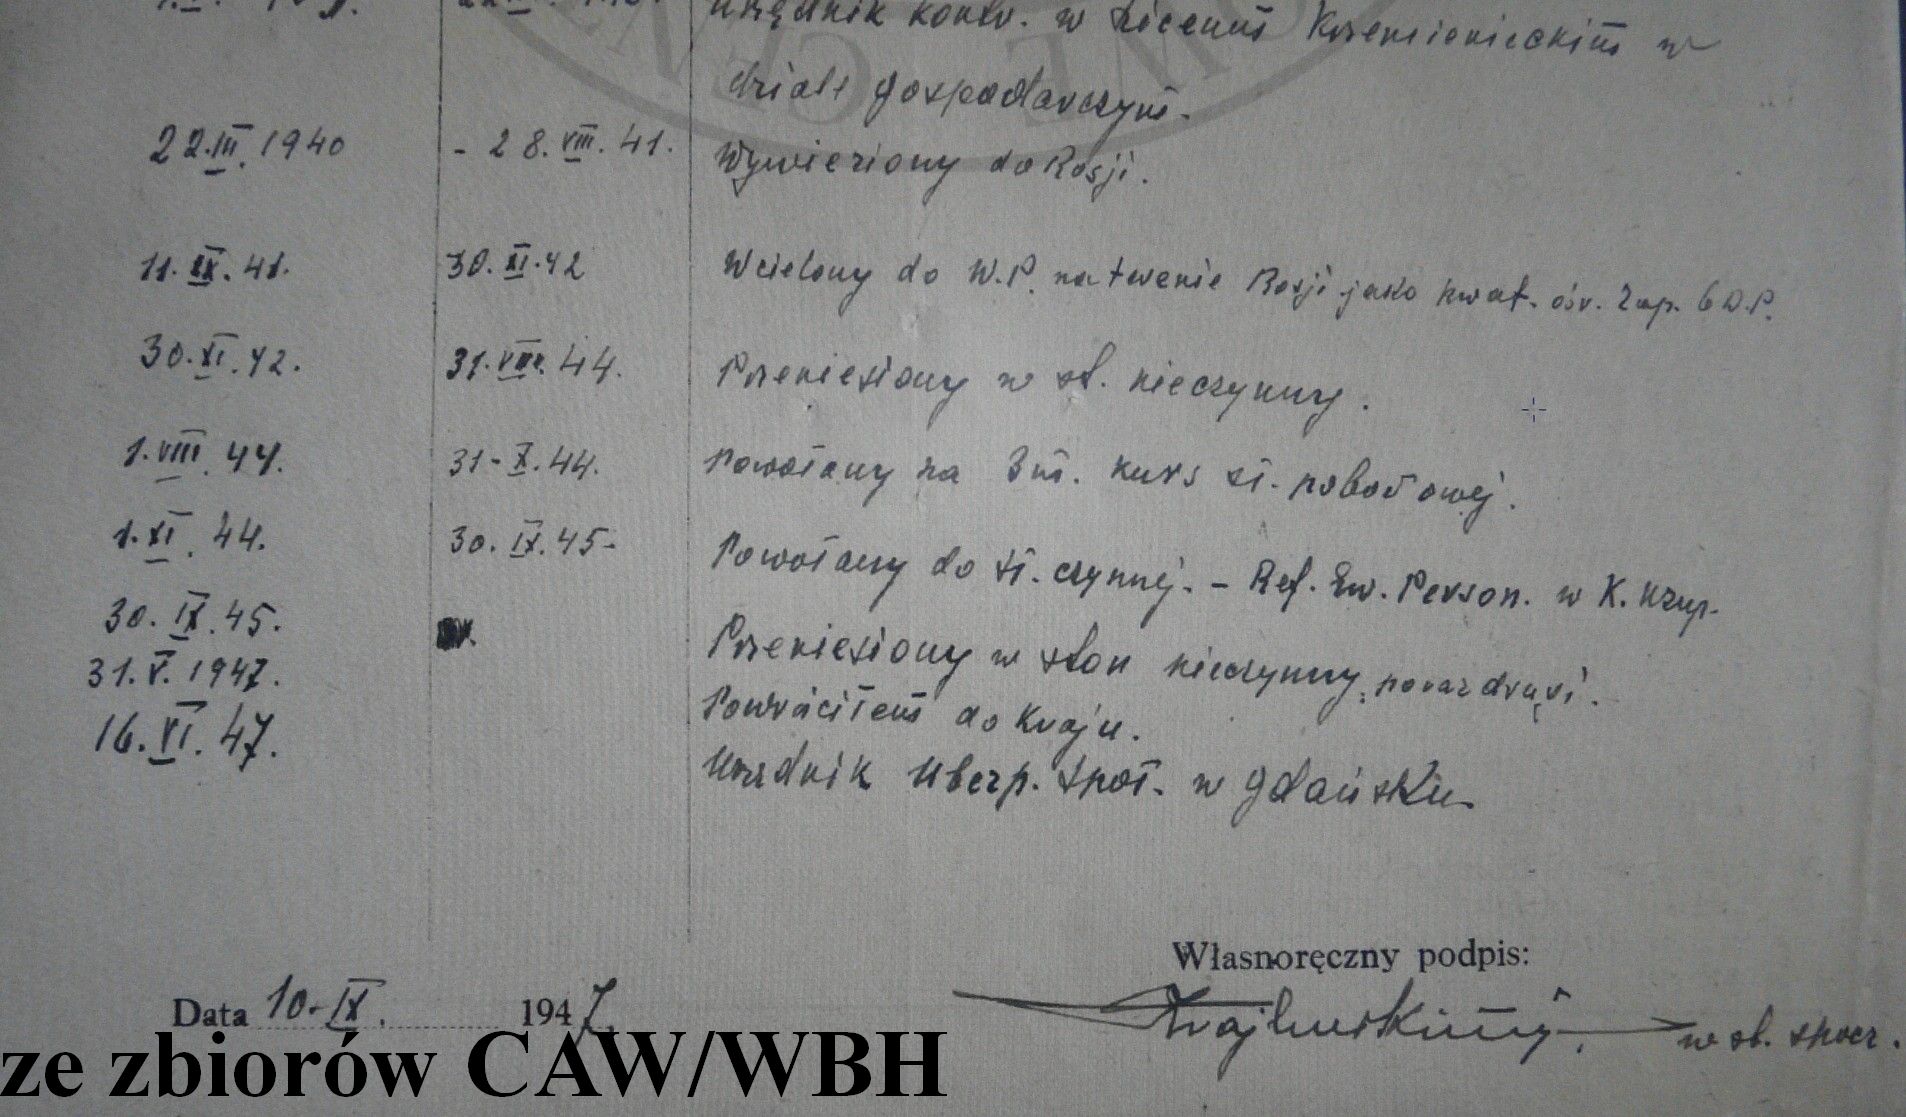 Urzędnik kontr. w Liceum Krzemienieckim w
dziale gospodarczym.
22.III.1940 - 28.VIII.41. Wywieziony do Rosji.
11.IX.41. 30.XI.42 Wcielony do W.P. na terenie Rosji jako kwat. ośr. zap. 6 D.P.
30.XI.42. 31.VIII.44. Przeniesiony w st. nieczynny.
1.VIII.44. 31-X.44. Powołany na 3 m. kurs sł. poborowej.
1.XI.44. 30.IX.45- Powołany do sł. czynnej. - Ref. Ew. Person. w K. Uzup.
30.IX.45. Przeniesiony w stan nieczynny, poraz drugi.
31.V.1947. Powróciłem do Kraju.
16.VI.47. Urzędnik Ubezp. Społ. w Gdańsku
Własnoręczny podpis:
Data 10-IX. 1947. w st. spocz.
ze zbiorów CAW/WBH